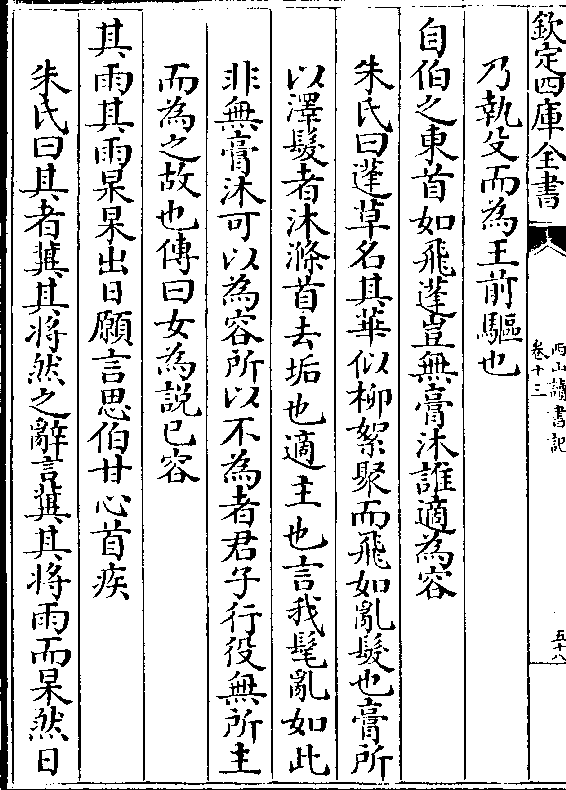 欽定四庫全書
西山讀書記
卷十三
五十八
乃執殳而為王前驅也
自伯之東首如飛蓬豈無膏沐誰適為容
朱氏曰蓬草名其華似柳絮聚而飛如亂髮也膏所
以澤髮者沐滌首去垢也適主也言我髦亂如此
非無膏沐可以為容所以不為者君子行役無所主
而為之故也傳曰女為説已容
其雨其雨杲杲出日願言思伯甘心首疾
朱氏曰其者冀其将然之辭言冀其将雨而杲然日